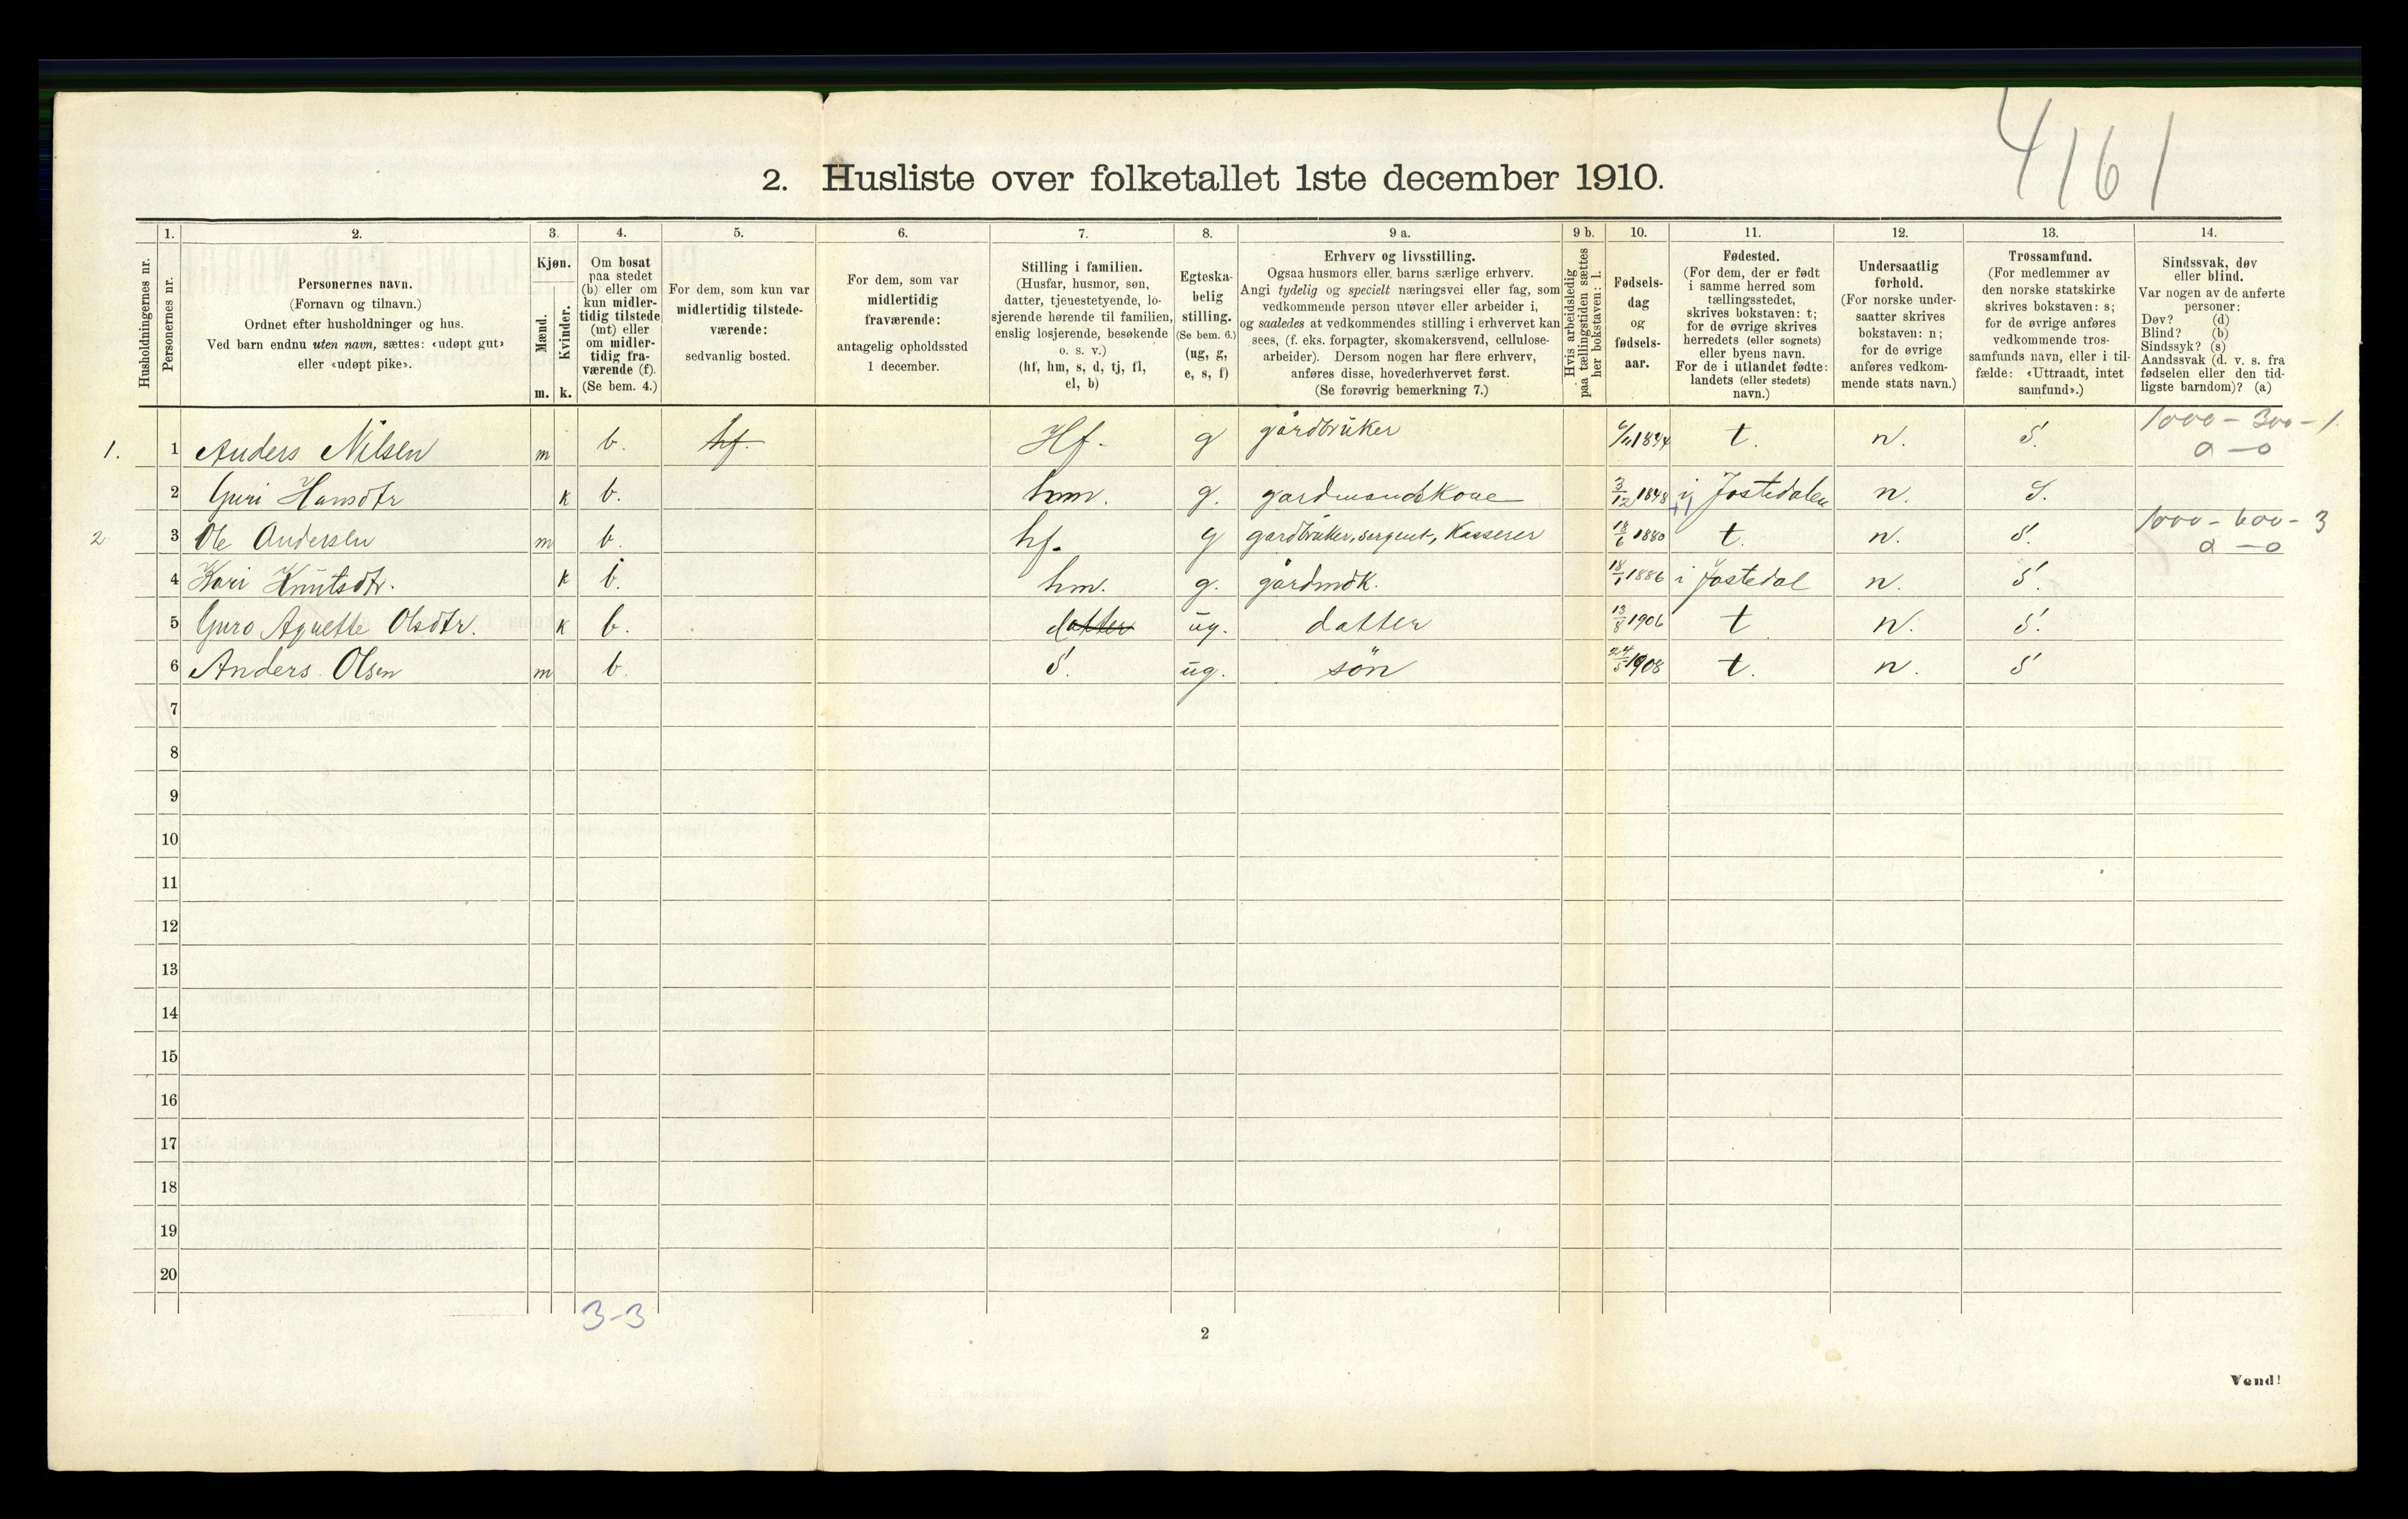 4161
2. Husliste over folketallet 1ste december 1910.
Husholdningernes nr.
1.
Personernes nr.
2.
Personernes navn.
(Fornavn og tilnavn.)
Ordnet efter husholdninger og hus.
Ved barn endnu uten navn, sættes: «udøpt gut»
eller «udøpt pike».
3.
Kjøn.
Mænd.
Kvinder.
m. k.
4.
Om bosat
paa stedet
(b) eller om
kun midler-
tidig tilstede
(mt) eller
om midler-
tidig fra-
værende (f).
(Se bem. 4.)
5.
For dem, som kun var
midlertidig tilstede-
værende:
sedvanlig bosted.
6.
For dem, som var
midlertidig
fraværende:
antagelig opholdssted
1 december.
7.
Stilling i familien.
(Husfar, husmor, søn,
datter, tjenestetyende, lo-
sjerende hørende til familien,
enslig losjerende, besøkende
o. s. v.)
(hf, hm, s, d, tj, fl,
el, b)
8.
Egteska-
belig
stilling.
(Se bem. 6.)
(ug, g,
e, s, f)
9 a.
Erhverv og livsstilling.
Ogsaa husmors eller barns særlige erhverv.
Angi tydelig og specielt næringsvei eller fag, som
vedkommende person utøver eller arbeider i,
og saaledes at vedkommendes stilling i erhvervet kan
sees, (f. eks. forpagter, skomakersvend, cellulose-
arbeider). Dersom nogen har flere erhverv,
anføres disse, hovederhvervet først.
(Se forøvrig bemerkning 7.)
9 b.
Hvis arbeidsledig
paa tællingstiden sættes
her bokstaven: l.
10.
Fødsels-
dag
og
fødsels-
aar.
11.
Fødested.
(For dem, der er født
i samme herred som
tællingsstedet,
skrives bokstaven: t;
for de øvrige skrives
herredets (eller sognets)
eller byens navn.
For de i utlandet fødte:
landets (eller stedets)
navn.)
12.
Undersaatlig
forhold.
(For norske under-
saatter skrives
bokstaven: n;
for de øvrige
anføres vedkom-
mende stats navn.)
13.
Trossamfund.
(For medlemmer av
den norske statskirke
skrives bokstaven: s;
for de øvrige anføres
vedkommende tros-
samfunds navn, eller i til-
fælde: «Uttraadt, intet
samfund».)
14.
Sindssvak, døv
eller blind.
Var nogen av de anførte
personer:
Døv? (d)
Blind? (b)
Sindssyk? (s)
Aandssvak (d. v. s. fra
fødselen eller den tid-
ligste barndom)? (a)
1000 - 300 - 1.
1. 1 Anders Nilsen m b. hf. Hf. g gårdbrúker t. n. S. a - o
2 Guri Hansdtr k b. hm. g. gardmandskone 3/12 1848 i Jostedalen n. S.
1000 - 600 - 3
2 3 Ole Andersen m b. hf. g gardbrúker, sergent, Kasserer 18/6 1880 t. n. S. a - o
4 Kari Knútsdtr. k b. hm. g. gårdmdk. 18/1 1886 i Jostedal n. S.
5 Guro Agnette Olsdtr. k b. datter úg. datter 13/8 1906 t n. S.
6 Anders Olsen m b. S. úg. sön 24/5 1908 t. n. S
7
8
9
10
11
12
13
14
15
16
17
18
19
20
3-3
2
Vend!